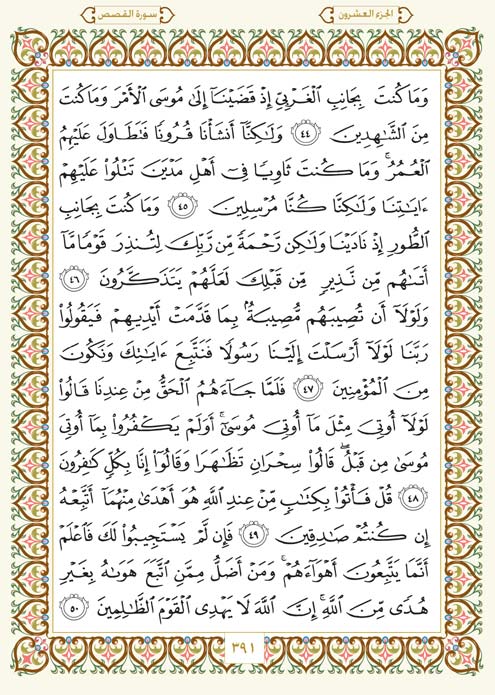 الجزء العشرون
سورة القصص
وَمَا كُنتَ بِجَانِبِ ٱلْغَرْبِىِّ إِذْ قَضَيْنَآ إِلَىٰ مُوسَى ٱلْأَمْرَ وَمَا كُنتَ
مِنَ ٱلشَّـٰهِدِينَ ﴿٤٤﴾ وَلَـٰكِنَّآ أَنشَأْنَا قُرُونًا فَتَطَاوَلَ عَلَيْهِمُ
ٱلْعُمُرُ ۚ وَمَا كُنتَ ثَاوِيًا فِىٓ أَهْلِ مَدْيَنَ تَتْلُوا۟ عَلَيْهِمْ
ءَايَـٰتِنَا وَلَـٰكِنَّا كُنَّا مُرْسِلِينَ ﴿٤٥﴾ وَمَا كُنتَ بِجَانِبِ
ٱلطُّورِ إِذْ نَادَيْنَا وَلَـٰكِن رَّحْمَةً مِّن رَّبِّكَ لِتُنذِرَ قَوْمًا مَّآ
أَتَىٰهُم مِّن نَّذِيرٍ مِّن قَبْلِكَ لَعَلَّهُمْ يَتَذَكَّرُونَ ﴿٤٦﴾
وَلَوْلَآ أَن تُصِيبَهُم مُّصِيبَةٌۢ بِمَا قَدَّمَتْ أَيْدِيهِمْ فَيَقُولُوا۟
رَبَّنَا لَوْلَآ أَرْسَلْتَ إِلَيْنَا رَسُولًا فَنَتَّبِعَ ءَايَـٰتِكَ وَنَكُونَ
مِنَ ٱلْمُؤْمِنِينَ ﴿٤٧﴾ فَلَمَّا جَآءَهُمُ ٱلْحَقُّ مِنْ عِندِنَا قَالُوا۟
لَوْلَآ أُوتِىَ مِثْلَ مَآ أُوتِىَ مُوسَىٰٓ ۚ أَوَلَمْ يَكْفُرُوا۟ بِمَآ أُوتِىَ
مُوسَىٰ مِن قَبْلُ ۖ قَالُوا۟ سِحْرَانِ تَظَـٰهَرَا وَقَالُوٓا۟ إِنَّا بِكُلٍّ كَـٰفِرُونَ
﴿٤٨﴾ قُلْ فَأْتُوا۟ بِكِتَـٰبٍ مِّنْ عِندِ ٱللَّهِ هُوَ أَهْدَىٰ مِنْهُمَآ أَتَّبِعْهُ
إِن كُنتُمْ صَـٰدِقِينَ ﴿٤٩﴾ فَإِن لَّمْ يَسْتَجِيبُوا۟ لَكَ فَٱعْلَمْ
أَنَّمَا يَتَّبِعُونَ أَهْوَآءَهُمْ ۚ وَمَنْ أَضَلُّ مِمَّنِ ٱتَّبَعَ هَوَىٰهُ بِغَيْرِ
هُدًى مِّنَ ٱللَّهِ ۚ إِنَّ ٱللَّهَ لَا يَهْدِى ٱلْقَوْمَ ٱلظَّـٰلِمِينَ ﴿٥٠﴾
٣٩١